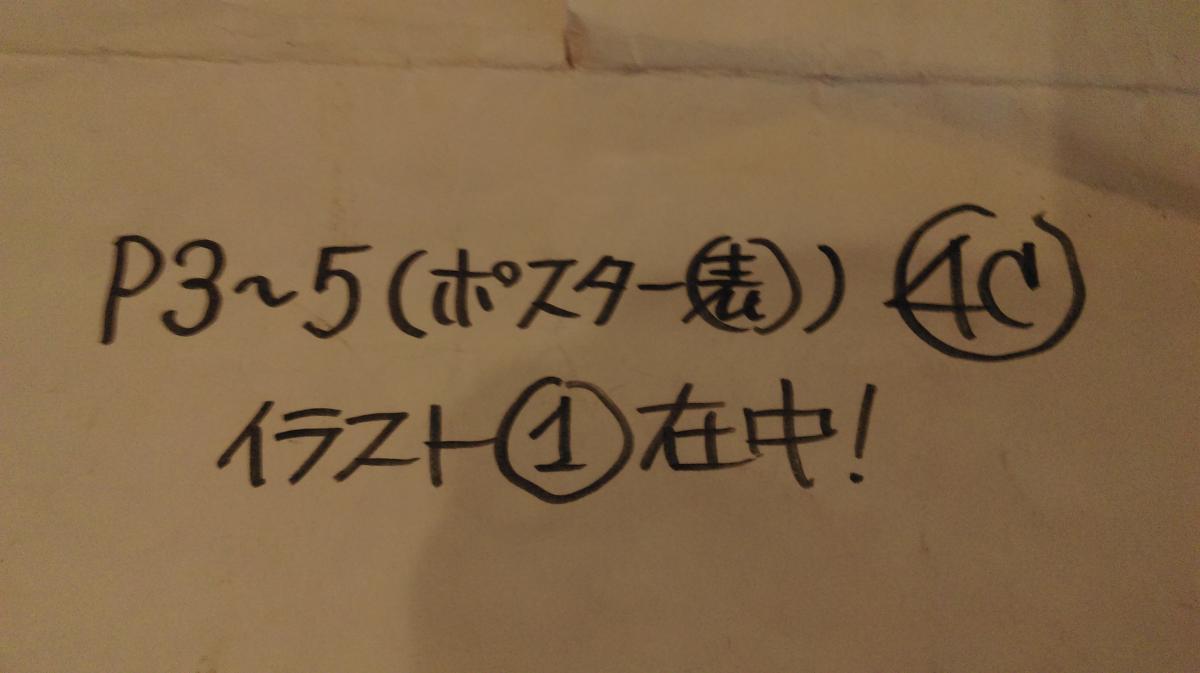 P3~5(ポスター㊤表))4C
イラスト①在中!